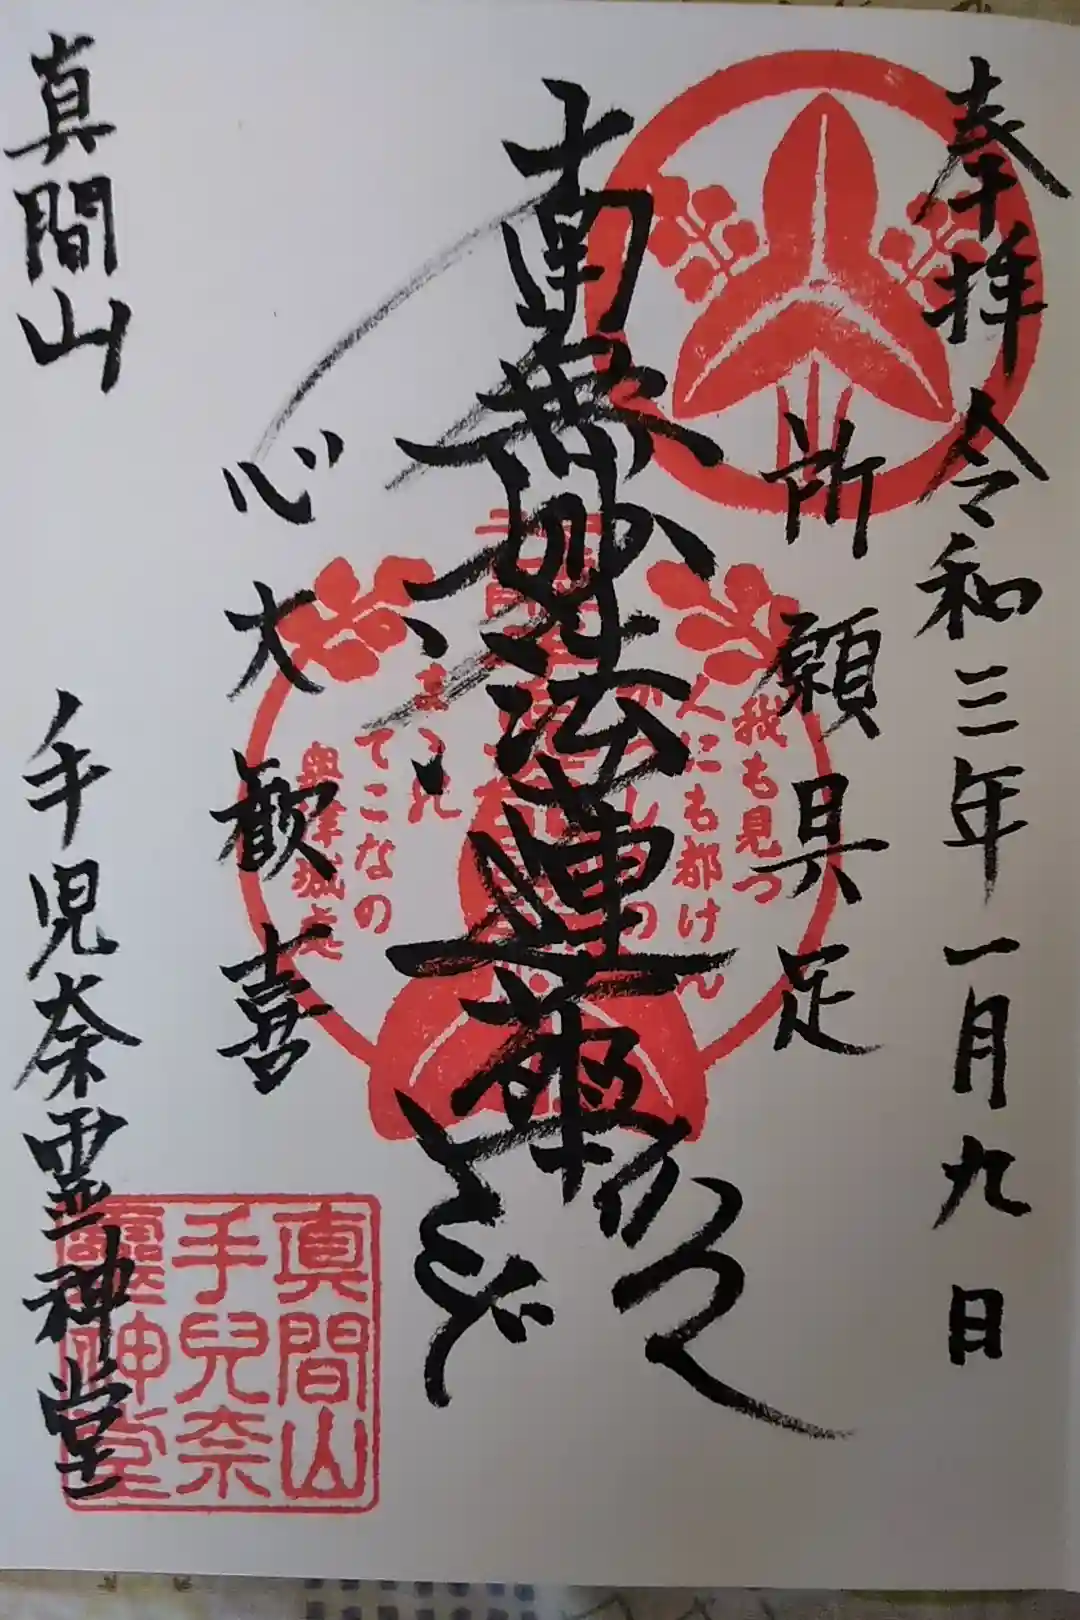 奉拝 令和三年一月九日
所願具足
南無妙法蓮華経
心大歓喜
真間山
手児奈霊神堂
我も見つ
人にも都げん
てこなの
奥津城処
真間山
手兒奈
靈神堂